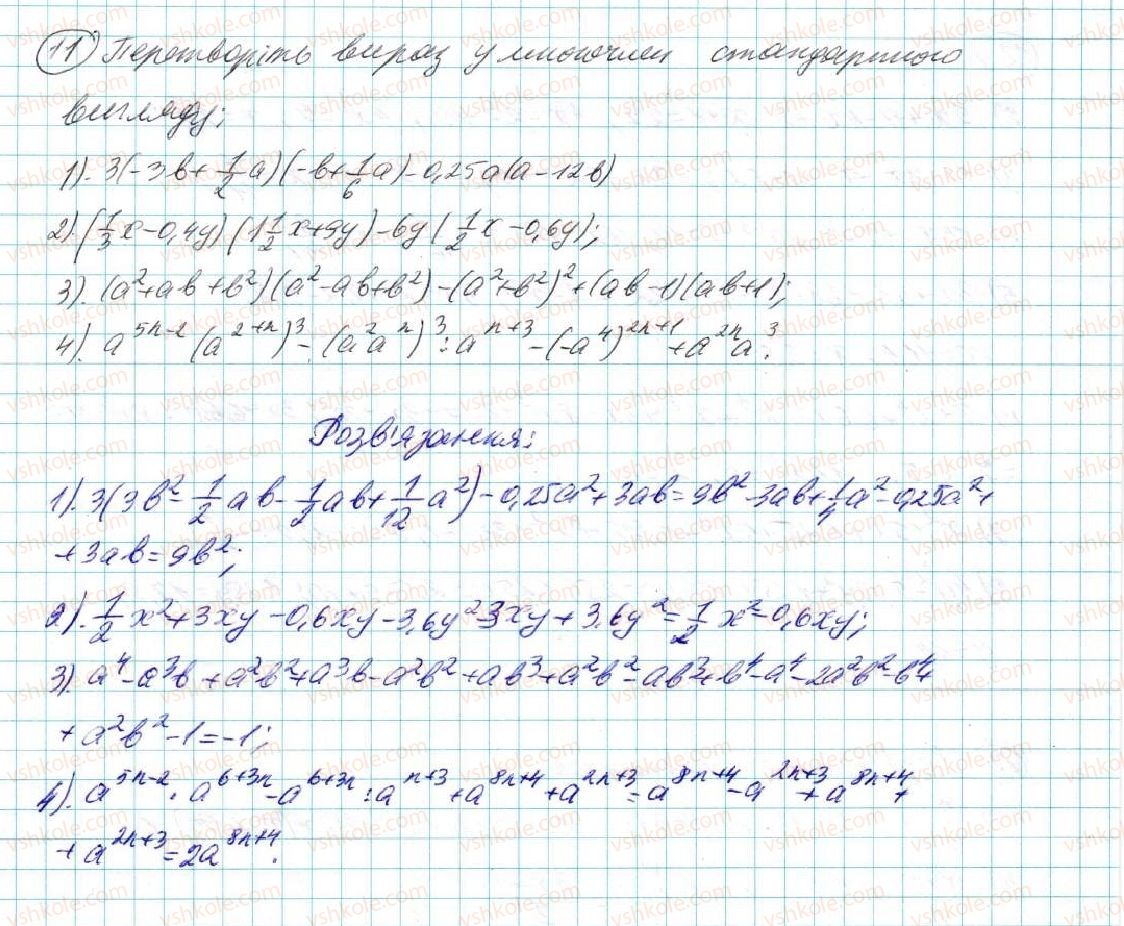 11) Перетворіть вираз у многочлен стандартного
вигляду:
1). 3(-3в+1/2a)(-в+1/6a)-0,25a(a-12в)
2). (1/3x-0,4y)(1 1/2x+9y)-6y(1/2x-0,6y);
3). (a²+aв+в²)(a²-aв+в²)-(a²+в²)²+(aв-1)(aв+1);
4). a^(5n-2)(a^(2+n))³-(a²a^n)³:a^(n+3)-(-a⁴)^(2n+1)+a^(2n)a³.
Розв'язання:
1). 3(3в²-1/2aв-1/2aв+1/12a²)-0,25a²+3aв=9в²-3aв+1/4a²-0,25a²+
+3aв=9в²;
2). 1/2x²+3xy-0,6xy-3,6y²-3xy+3,6y²=1/2x²-0,6xy;
3). a⁴-a³в+a²в²+a³в-a²в²+aв³+a²в²-aв³+в⁴-a⁴-2a²в²-в⁴+
+a²в²-1=-1;
4). a^(5n-2)·a^(6+3n)-a^(6+3n):a^(n+3)+a^(8n+4)+a^(2n+3)=a^(8n+4)-a^(2n+3)+a^(8n+4)+
+a^(2n+3)=2a^(8n+4).